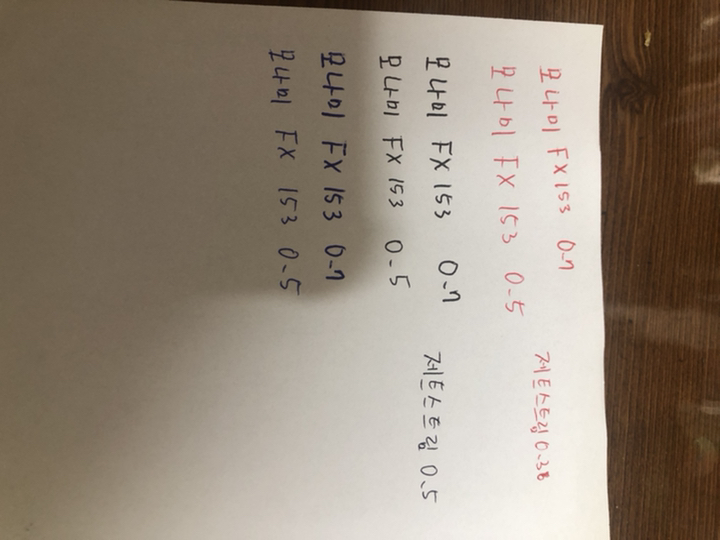 모나미 FX 153 0.7 제트스트림 0.38
모나미 FX 153 0.5
모나미 FX 153 0.7 제트스트림 0.5
모나미 FX 153 0.5
모나미 FX 153 0.7
모나미 FX 153 0.5